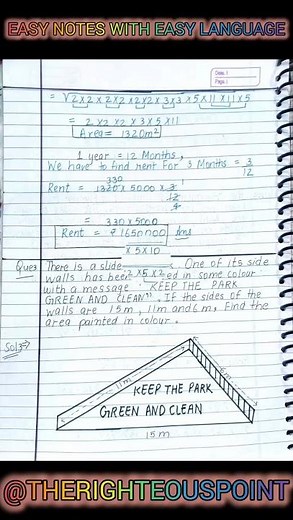 EASY NOTES WITH EASY LANGUAGE
Date: / /
Page:
= √2×2×2×2×2×2×3×3×5×11×11×5
= 2×2×2×3×5×11
Area = 1320m²
1 year = 12 Months,
We have to find rent For 3 Months = 3/12
330
Rent = 1320 × 5000 × 3 1
12
4
= 330×5000
Rent = ₹1650000 Ans
× 5 × 10
Ques There is a slide One of its side
walls has been 2 × 5 × 2 ed in some colour
with a message "KEEP THE PARK
GREEN AND CLEAN". If the sides of the
walls are 15m, 11m and 6m, Find the
area painted in colour.
Sol3⇒
11m
6m
KEEP THE PARK
GREEN AND CLEAN
15m
@THERIGHTEOUSPOINT